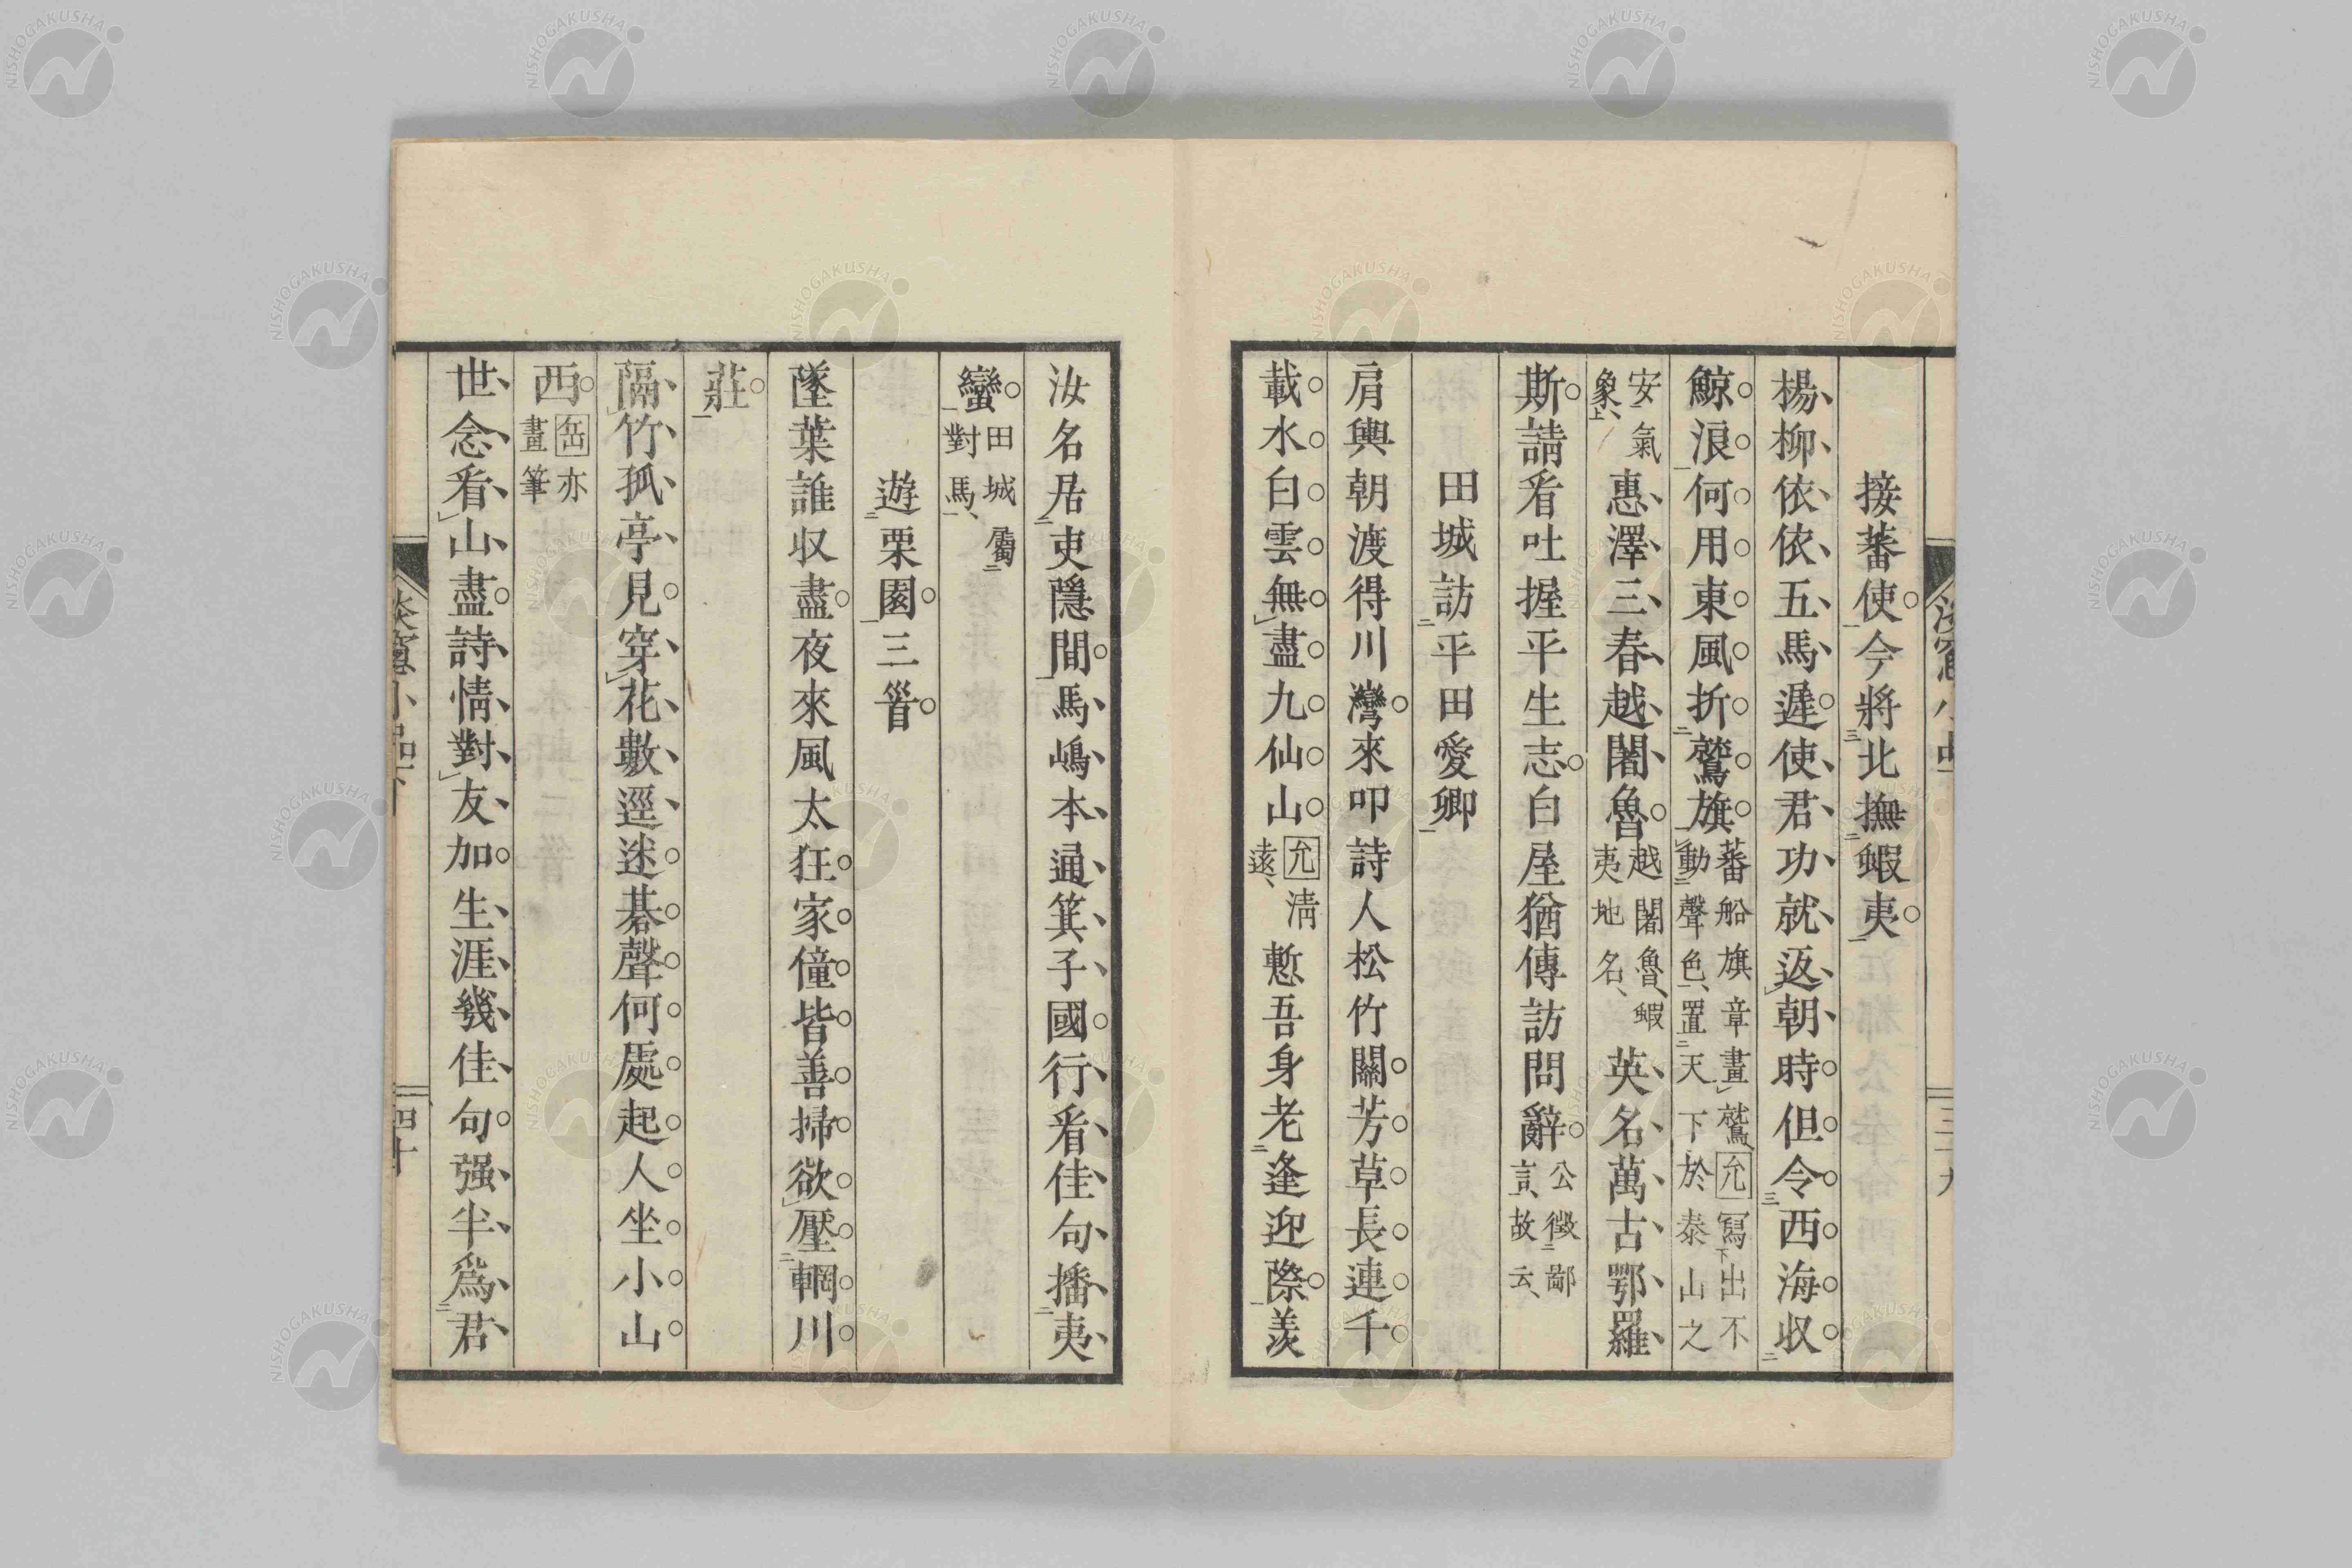 接蕃使今將北撫蝦夷
楊柳依依五馬遲使君功就返朝時但令西海収
鯨浪何用東風折鷲旗蕃船旗章畫鷲允寫出不
動聲色置天下於泰山之
安氣
象惠澤三春越闍魯越闍魯蝦
夷地名英名萬古鄂羅
斯請看吐握平生志白屋猶傳訪問辭公徵鄙
言故云
田城訪平田愛卿
肩輿朝渡得川灣來叩詩人松竹關芳草長連千
載水白雲無盡九仙山允清
遠慙吾身老逢迎際羡
汝名居吏隱間馬嶋本通箕子國行看佳句播夷
蠻田城屬
對馬
遊栗園三首
墜葉誰収盡夜來風太狂家僮皆善掃欲壓輞川
莊
隔竹孤亭見穿花數逕迷碁聲何處起人坐小山
西嵒亦
畫筆
世念看山盡詩情對友加生涯幾佳句强半爲君
四十
NISHOGAKUSHA